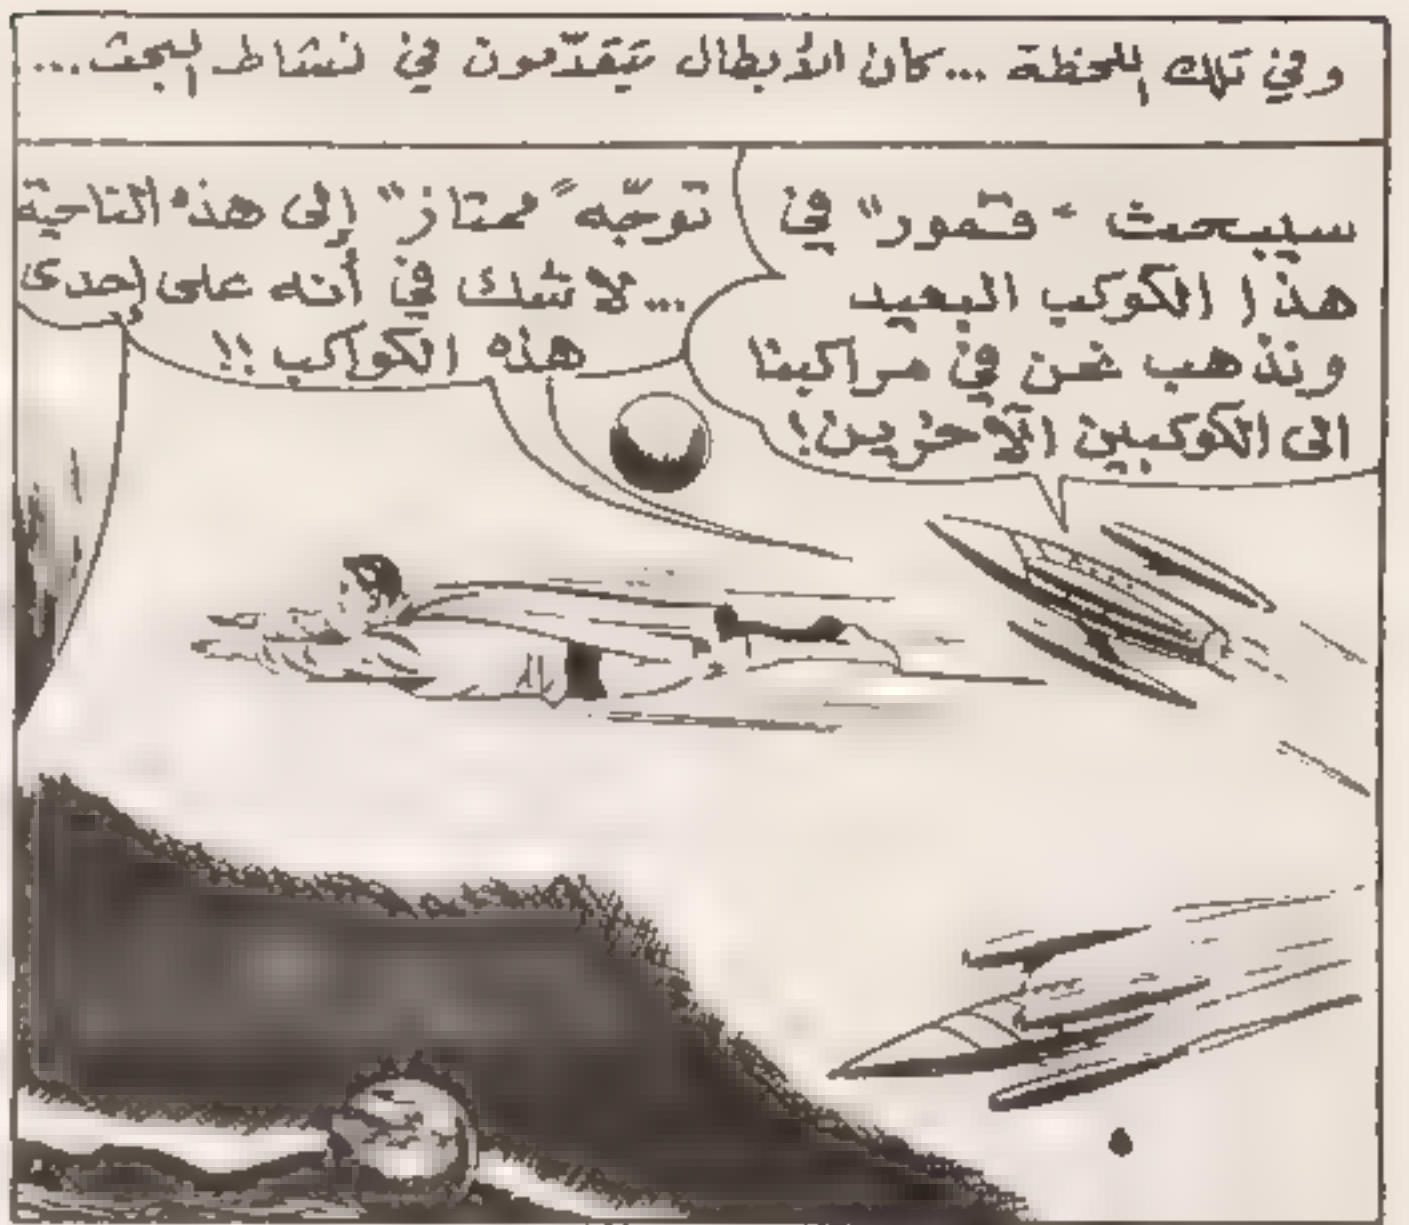 وفي تلك اللحظة ...كان الأبطال يتقدّمون في نشاط للبحث...
سيبحث "قمور" في
هذا الكوكب البعيد
ونذهب نحن في مراكبنا
الى الكوكبين الآخرين!
توجّه "ممتاز" إلى هذه الناحية
...لا شك في أنه على إحدى
هذه الكواكب !!